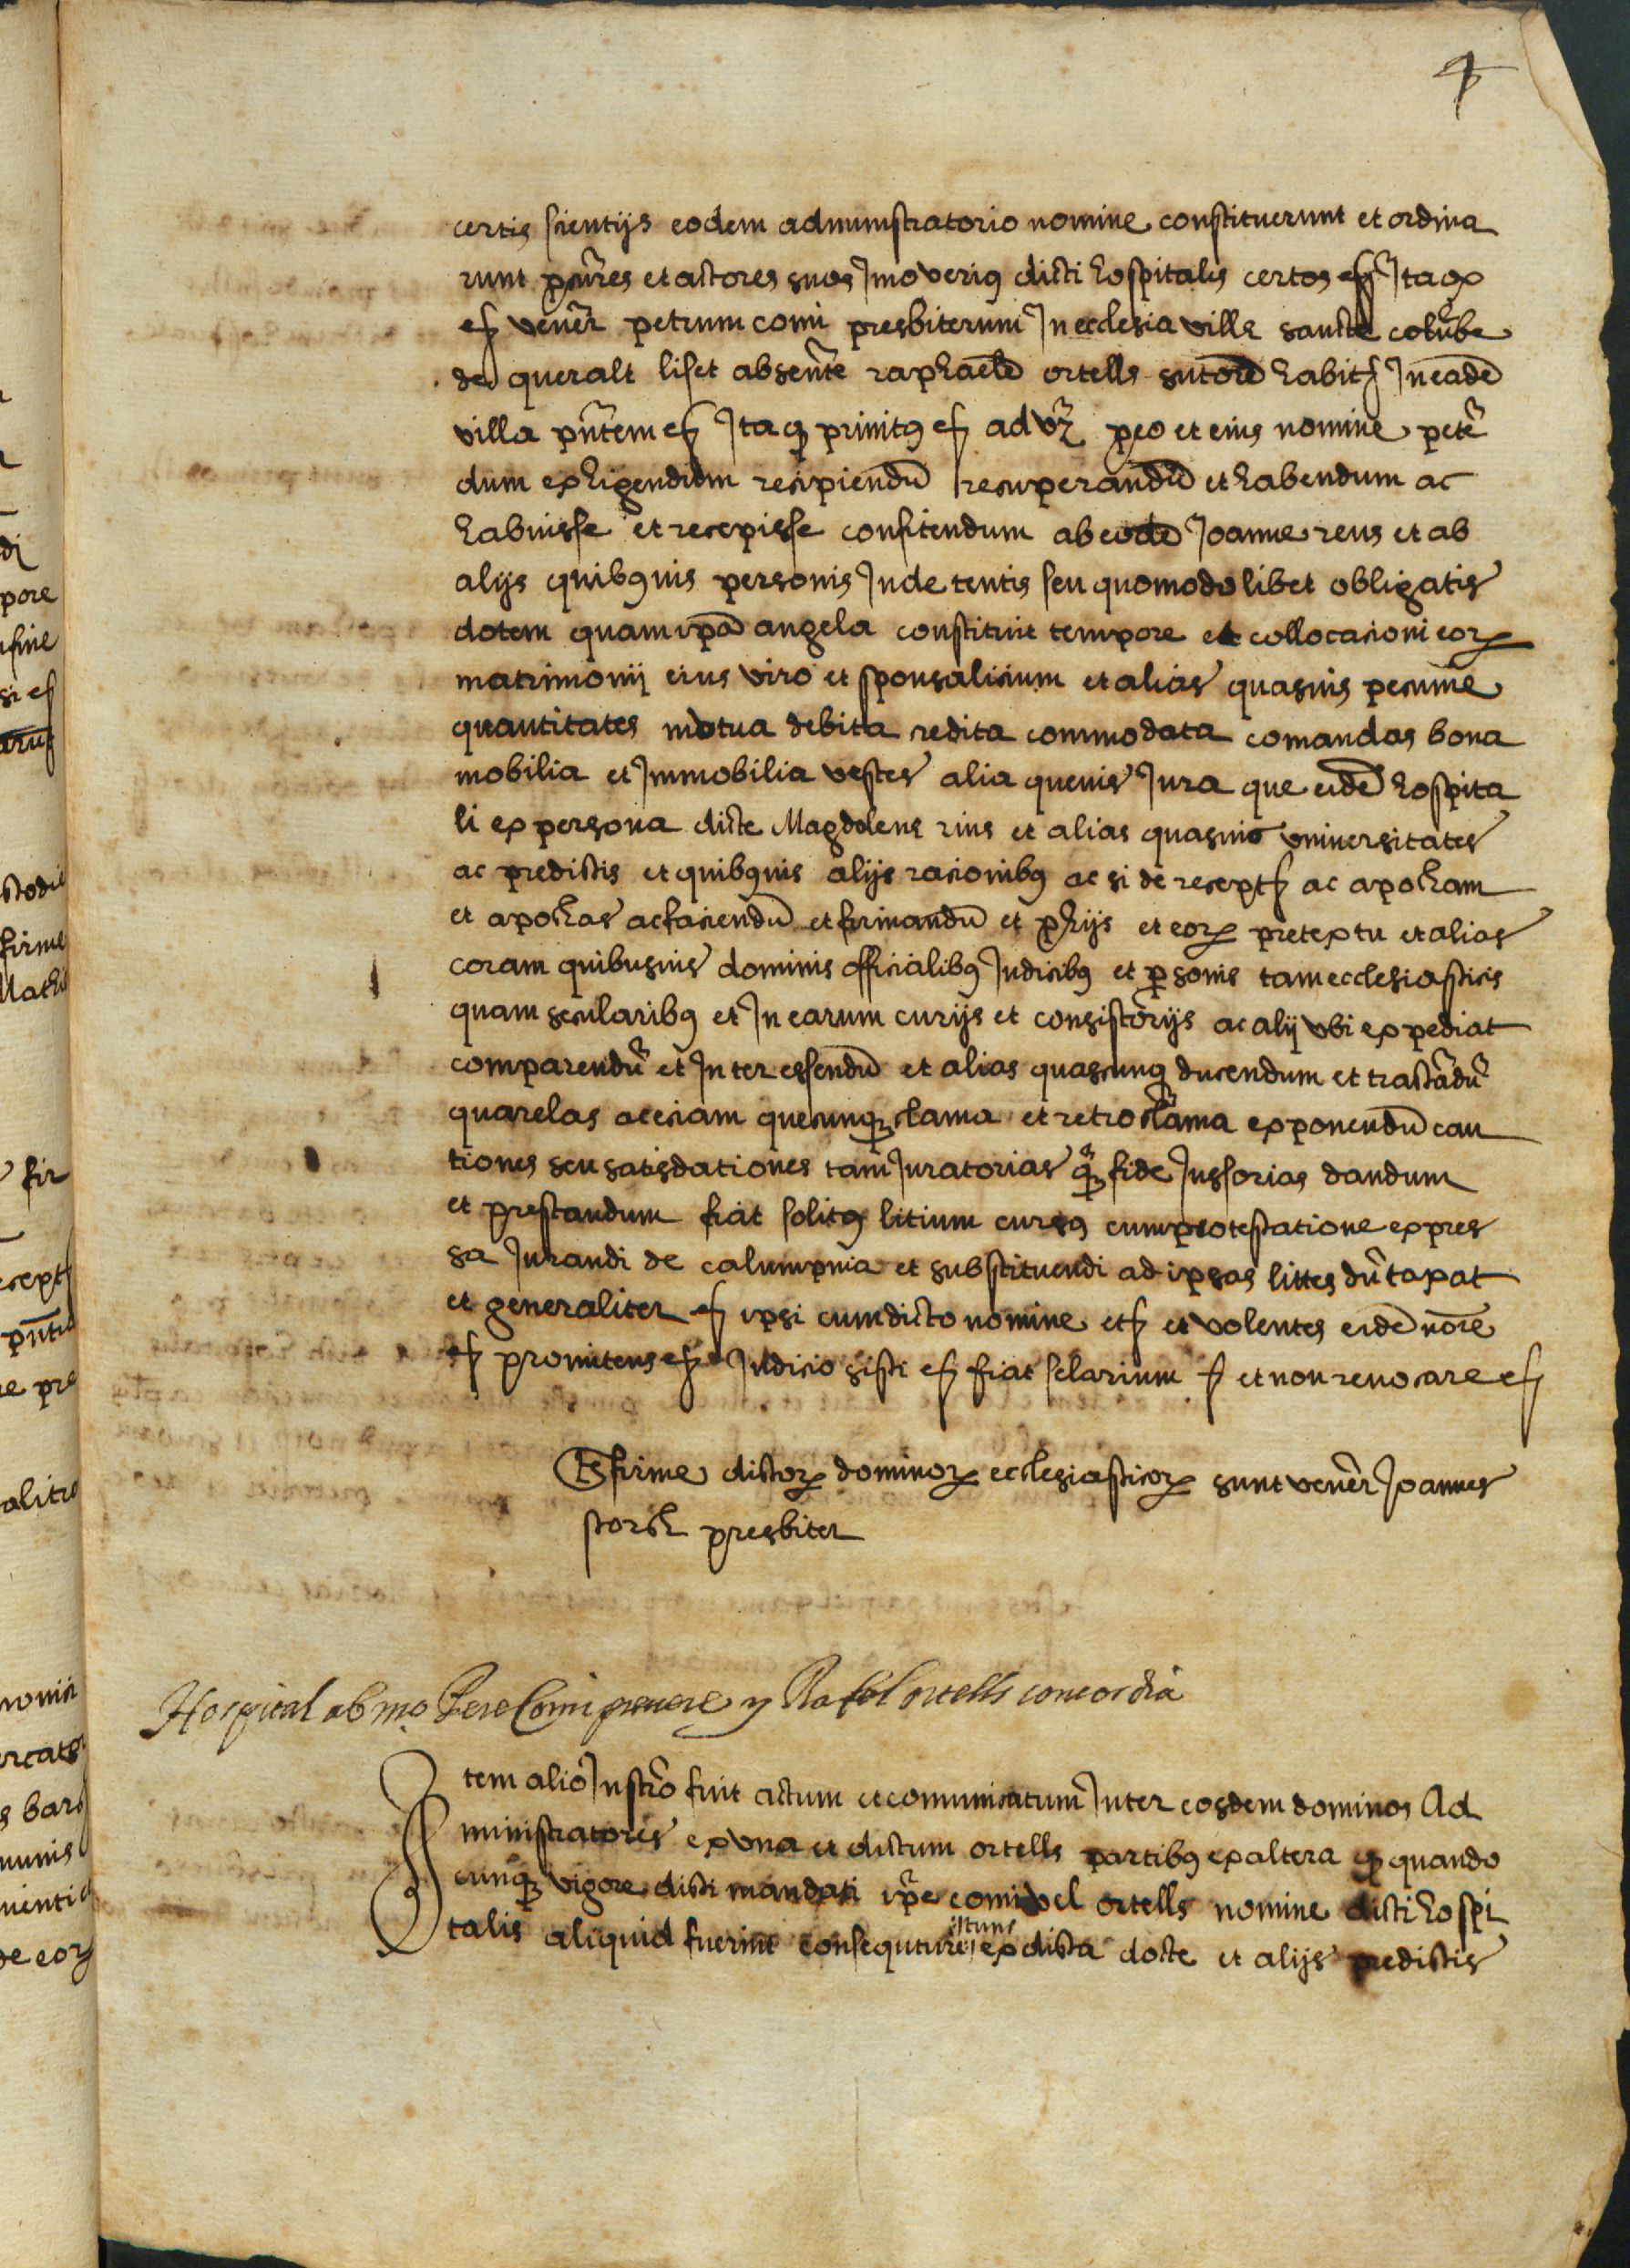 4
certis scientijs eodem administratorio nomine constituerunt et ordina
runt pr̃ures et actores suos Jmo verius dicti hospitalis certos Ita
venẽr petrum comi presbiterum In ecclesia ville sancte colũbe
de queralt liset absentẽ raphaelē ortells sutorē habitʒ In eadē
villa pñtem Itaq primitus ad peo et eius nomine petē
dum exhigendum recipiendũ recuperandũ et habendum ac
habuisse et recepisse confitendum ab eodē Joanne reus et ab
alijs quibusuis personis Inde tentis seu quomodolibet obligatis
dotem quam ipã angela constituit tempore et collocacioni eorʒ
matrimonij eius viro et sponsalicium et alias quasuis pecunie
quantitates motua debita redita commodata comandas bona
mobilia et Jmmobilia vestes alia queuis Jura que eidē hospita
li ex persona dicte Magdolens rius et alias quasuis vniuersitates
ac predictis et quibusuis alijs racionibus ac si de receptʒ ac apocham
et apochas ac faciendũ et firmandũ et et eorʒ pretextu et alias
coram quibusuis dominis officialibus Judicibus et personis tam ecclesiasticis
quam secularibus et In earum curijs et consistorijs ac alij vbi expediat
comparendũ et Interessendũ et alias quascunq ducendum et tractãdũ
quarelas ac eciam quecunq clama et retroclama exponendũ cau
tiones seu satisdationes tam Juratorias q̃ fide Jussorias dandum
et prestandum fiat solitus litium cursus cum protestatione expres
sa Jurandi de calumpnia et substituendi ad ipsas littes dũtaxat
et generaliter ipsi cum dicto nomine et volentes eidē noĩe
promitens Judicio sisti fiat selarium et non reuocare
firme dictorʒ dominorʒ ecclesiasticorʒ sunt venẽr Joannes
storch presbiter
Hospital ab mo. Pere Comi preuere y Rafel ortells concordia
Item alio Instrõ fuit actum et comunicatum Inter eosdem dominos Ad
ministratores ex vna et dictum ortells partibus ex altera quando
cunq vigore dicti mandati ip̃e comi vel ortells nomine dicti hospi
talis aliquid fuerint ex dicta docte et alijs predictis